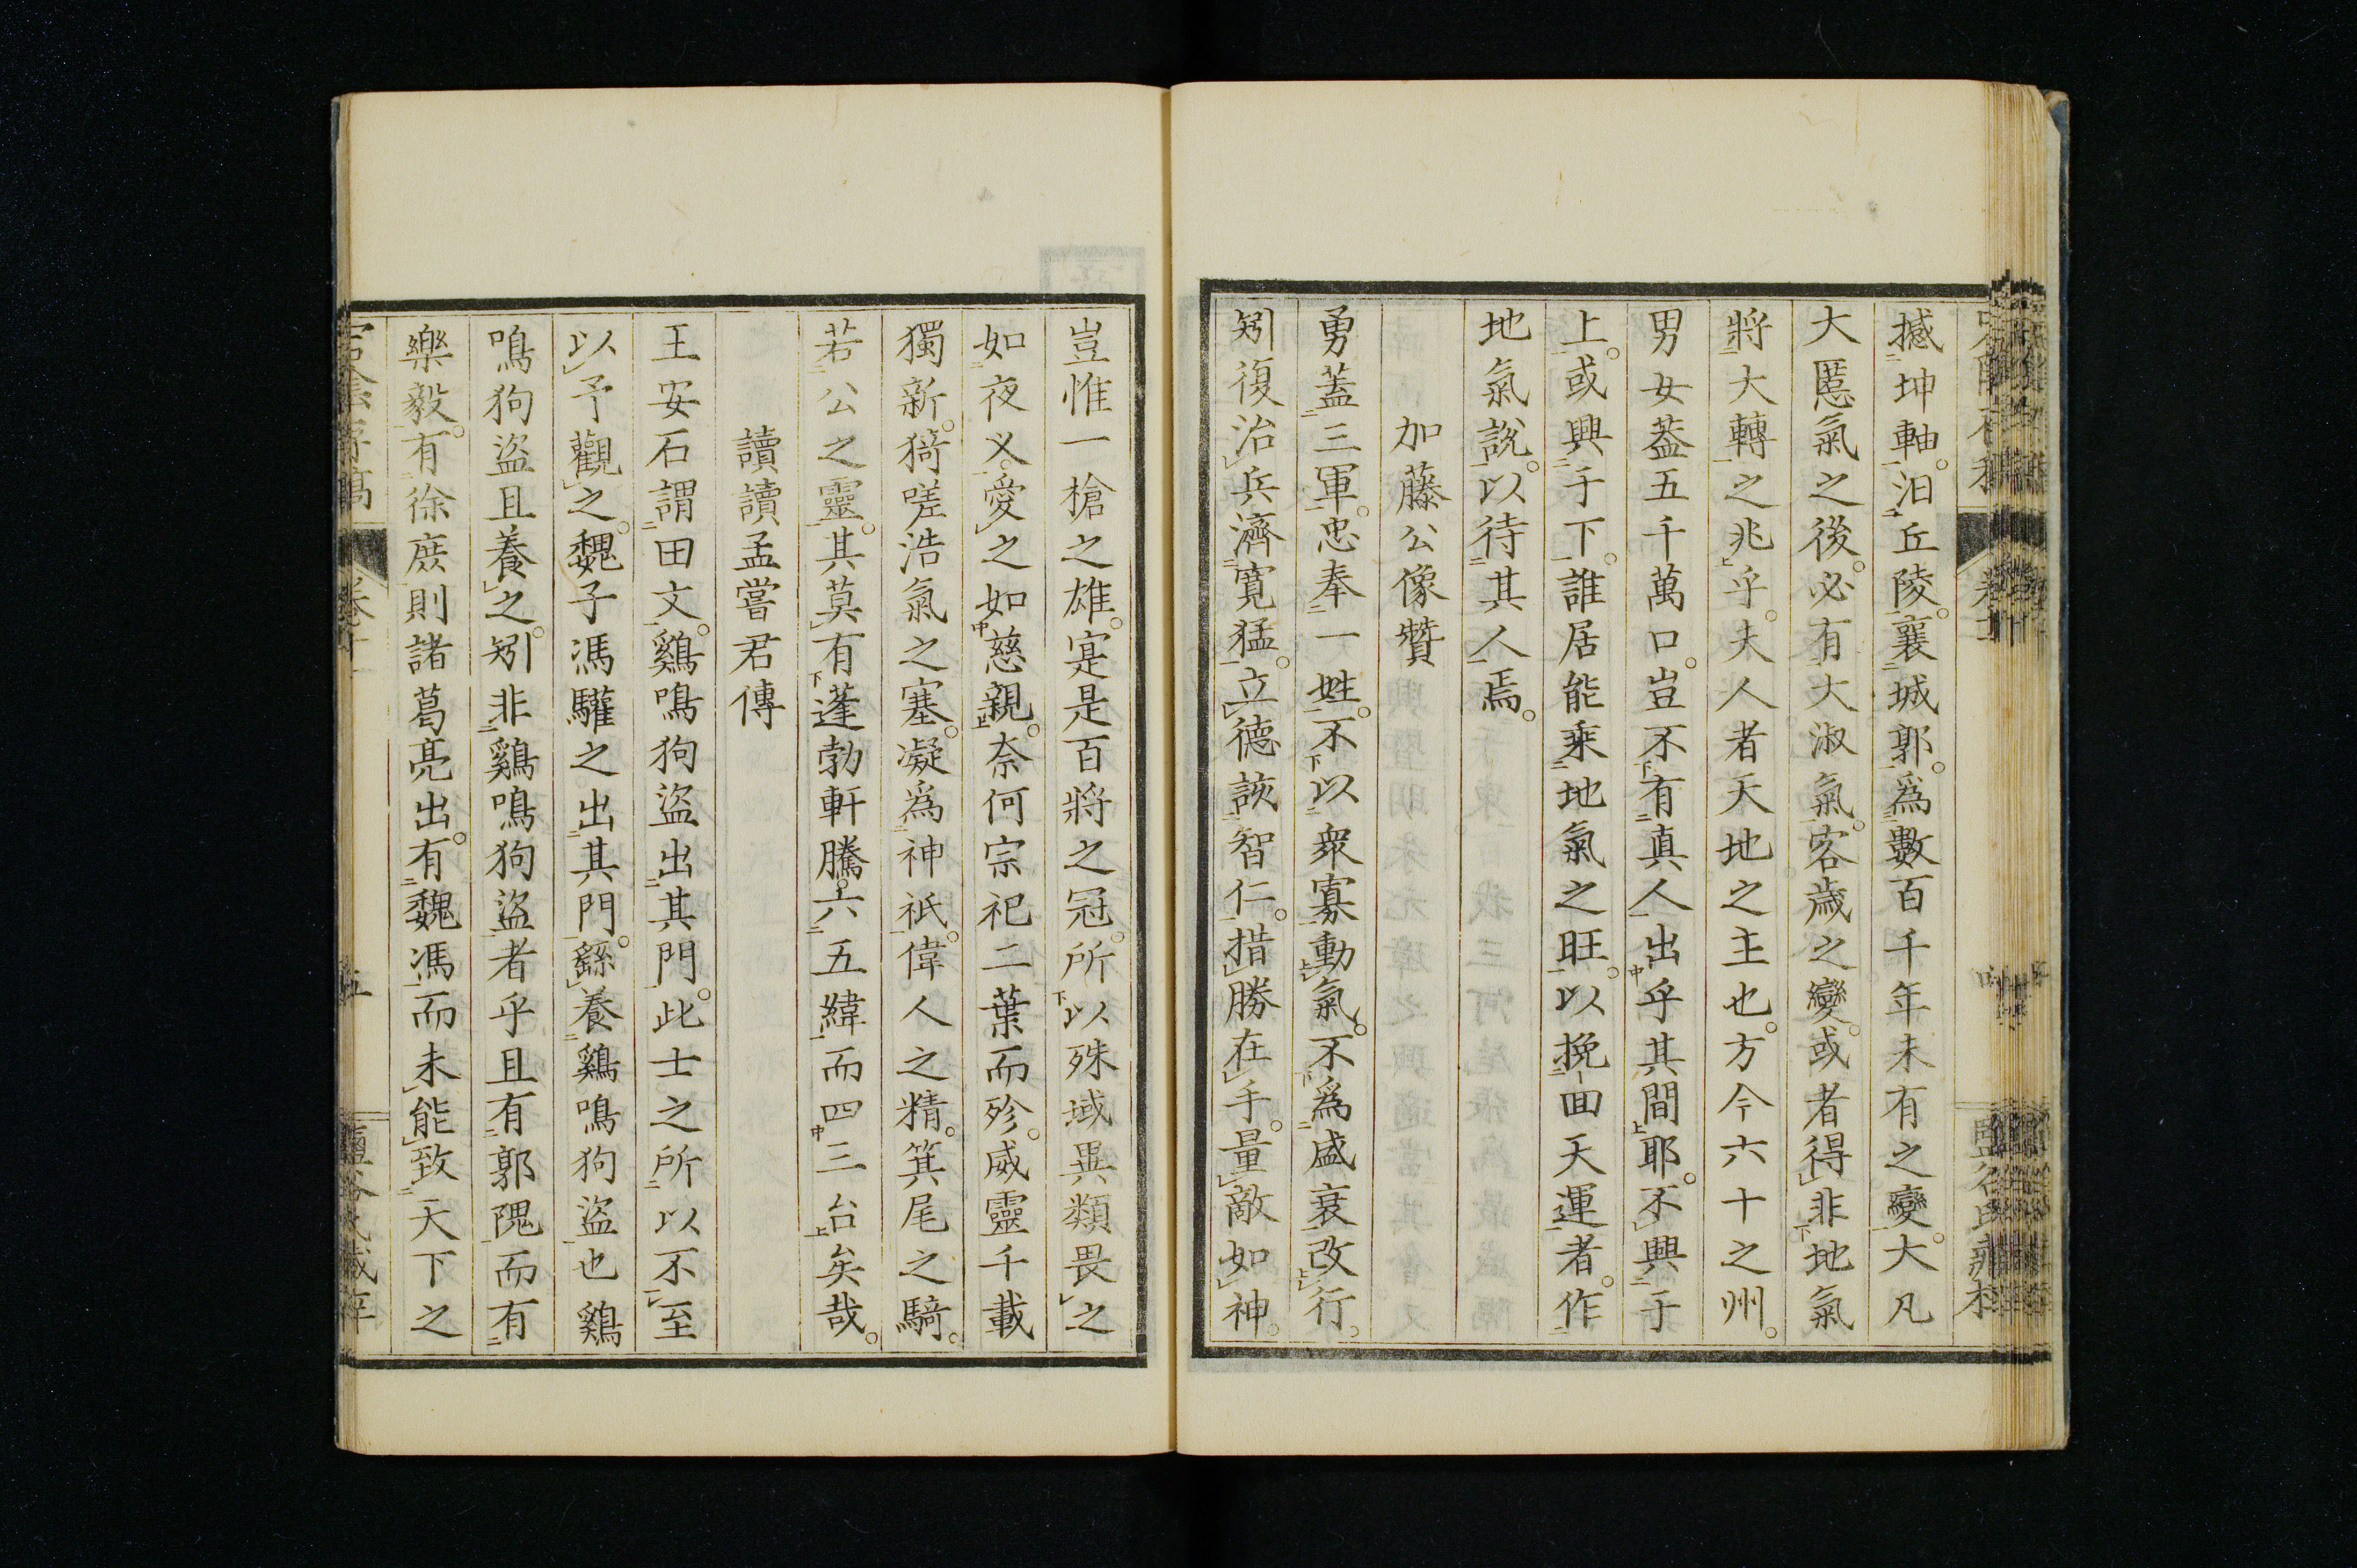 撼坤軸。汨丘陵。襄城郭。爲數百千年未有之變。大凡
大慝氣之後。必有大淑氣。客歳之變。或者得非地氣
將大轉之兆乎。夫人者天地之主也。方今六十之州。
男女葢五千萬口。豈不有真人出乎其間耶。不興于
上。或興于下。誰居能乘地氣之旺。以挽回天運者。作
地氣說。以待其人焉。
加藤公像贊
勇蓋三軍。忠奉一姓。不以衆寡動氣。不爲盛衰改行。
矧復治兵濟寛猛。立德該智仁。措勝在手。量敵如神。
豈惟一槍之雄。寔是百將之冠。所以殊域異類畏之
如夜叉。愛之如慈親。奈何宗祀二葉而殄。威靈千載
獨新。猗嗟浩氣之塞。凝爲神祇。偉人之精。箕尾之騎。
若公之靈。其莫有蓬勃軒騰。六五緯而四三台矣哉。
讀讀孟嘗君傳
王安石謂田文。鷄鳴狗盜出其門。此士之所以不至
以予觀之。魏子馮驩之出其門。繇養鷄鳴狗盜也鷄
鳴狗盜且養之。矧非鷄鳴狗盜者乎且有郭隗而有
樂毅。有徐庶則諸葛亮出。有魏馮而未能致天下之